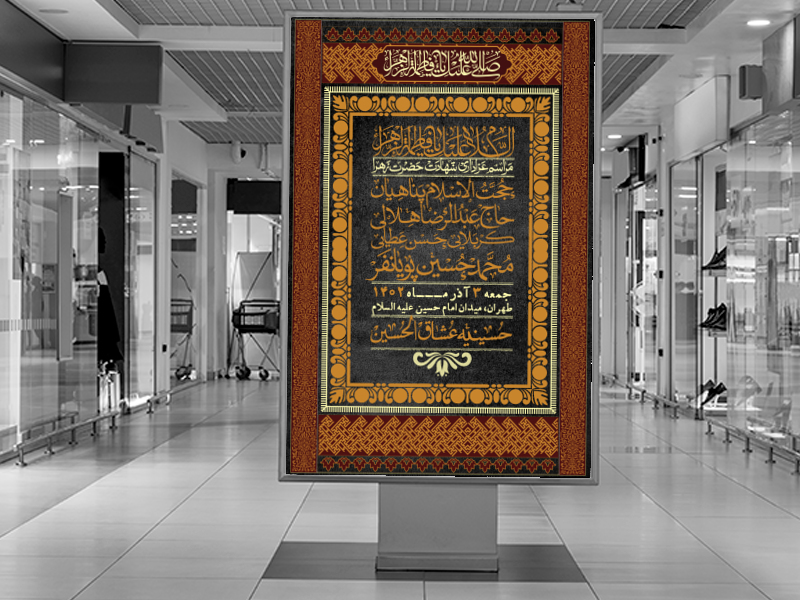 صلی الله علیک یا فاطمة الزهرا
السلام علیک یا فاطمة الزهرا
مراسم عزاداری شهادت حضرت زهرا
حجت الاسلام پناهیان
حاج عبدالرضا هلالی
کربلایی حسن عطایی
محمدحسین پویانفر
جمعه ۳ آذر مــاه ۱۴۰۲
طهران، میدان امام حسین علیه السلام
حسینیه عشاق الحسین